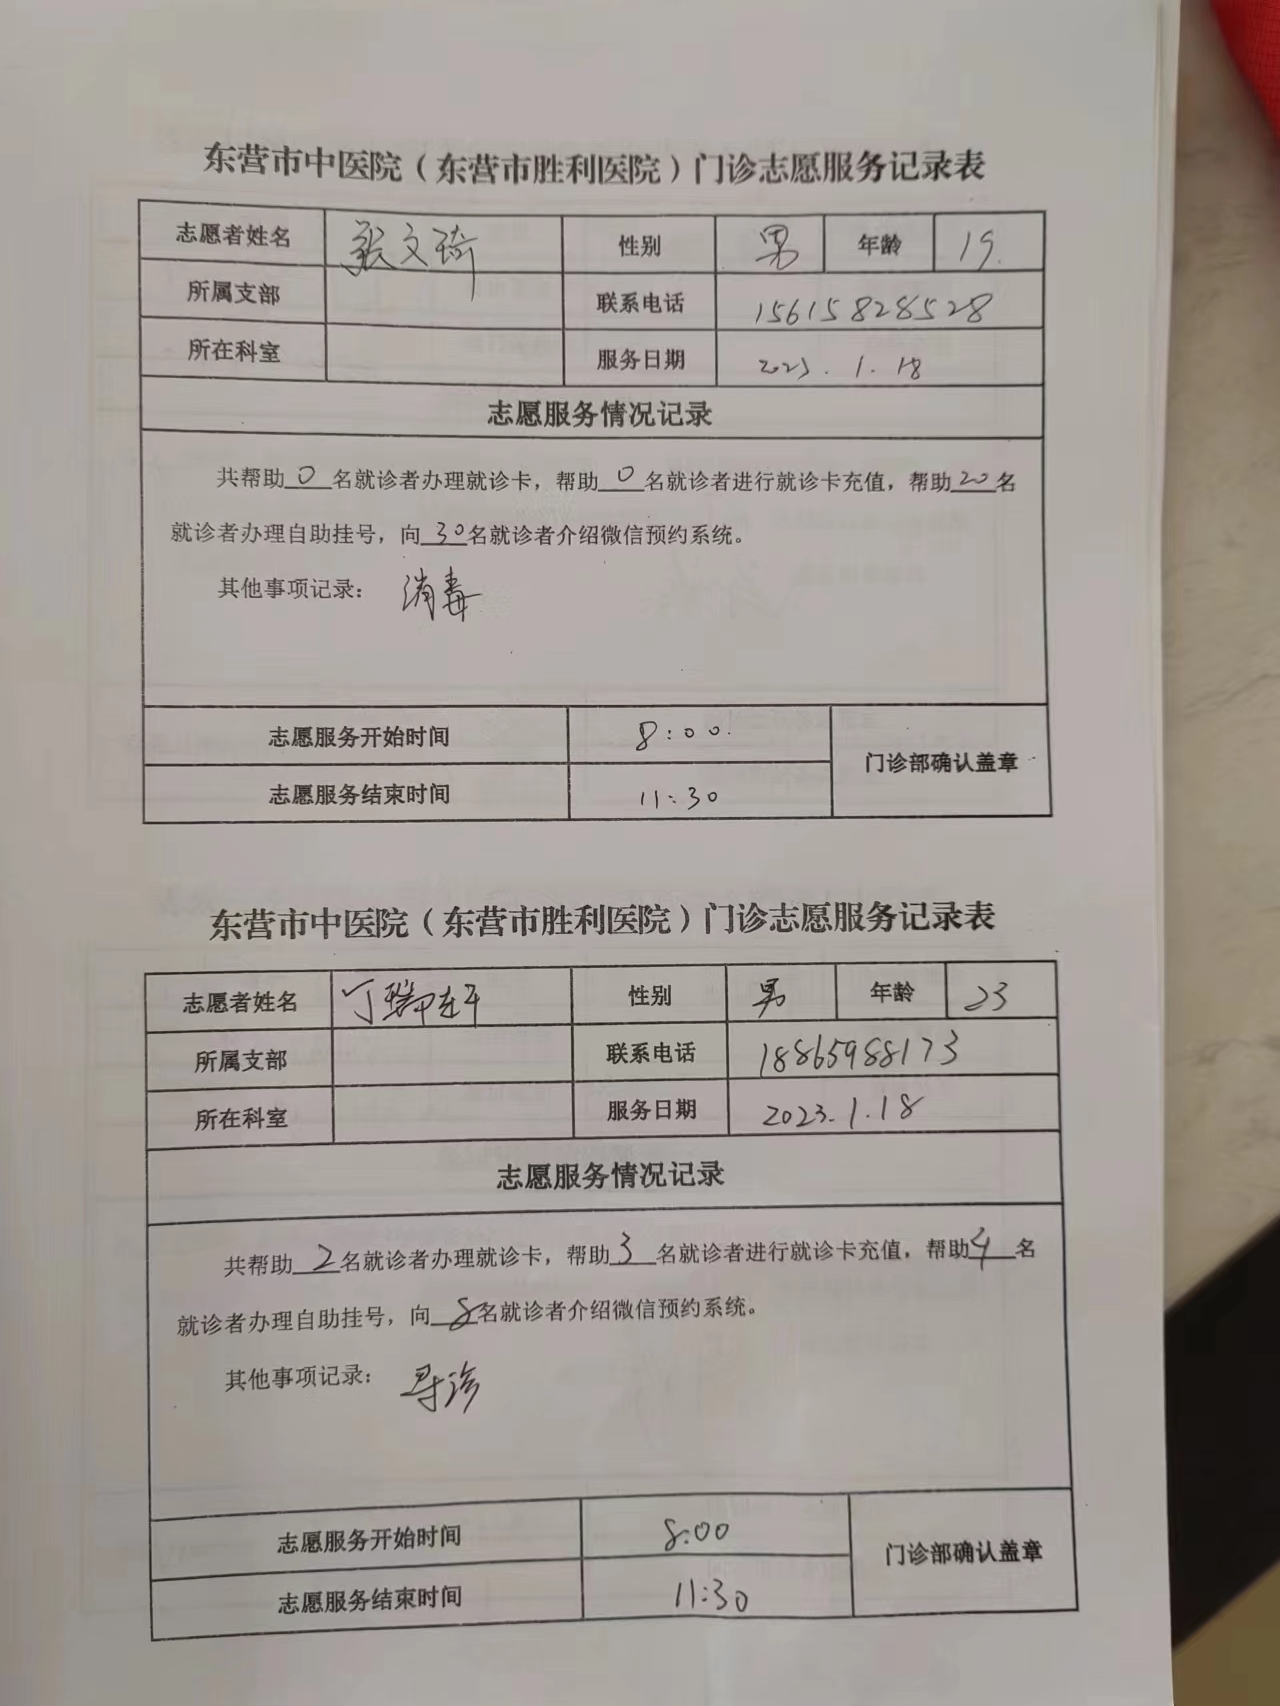 东营市中医院（东营市胜利医院）门诊志愿服务记录表
志愿者姓名 张文琦 性别 男 年龄 19.
所属支部 联系电话 15615828528
所在科室 服务日期 2023.1.18
志愿服务情况记录
共帮助0名就诊者办理就诊卡，帮助0名就诊者进行就诊卡充值，帮助20名
就诊者办理自助挂号，向30名就诊者介绍微信预约系统。
其他事项记录： 消毒
志愿服务开始时间 8:00.
门诊部确认盖章
志愿服务结束时间 11:30
东营市中医院（东营市胜利医院）门诊志愿服务记录表
志愿者姓名 丁 性别 男 年龄 23
所属支部 联系电话 18865988173
所在科室 服务日期 2023.1.18
志愿服务情况记录
共帮助2名就诊者办理就诊卡，帮助3名就诊者进行就诊卡充值，帮助4名
就诊者办理自助挂号，向8名就诊者介绍微信预约系统。
其他事项记录： 导诊
志愿服务开始时间 8:00
门诊部确认盖章
志愿服务结束时间 11:30